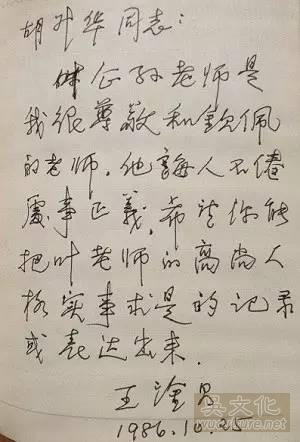 胡升华同志：
叶企孙老师是
我很尊敬和钦佩
的老师。他诲人不倦
处事正義，希望你能
把叶老师的高尚人
格实事求是的记录
或表达出来.
王淦昌
1986.10.25
吴文化
wuculture.net